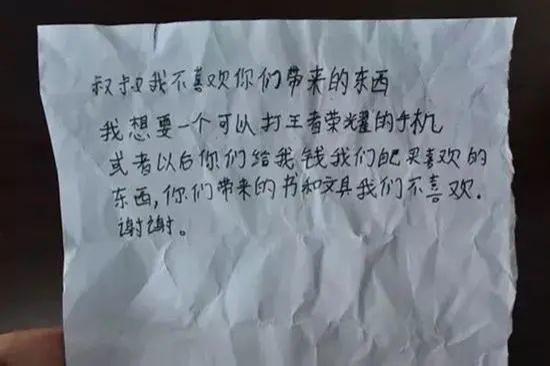 叔叔我不喜欢你们带来的东西
我想要一个可以打王者荣耀的手机
或者以后你们给我钱我们自己买喜欢的
东西,你们带来的书和文具我们不喜欢.
谢谢。